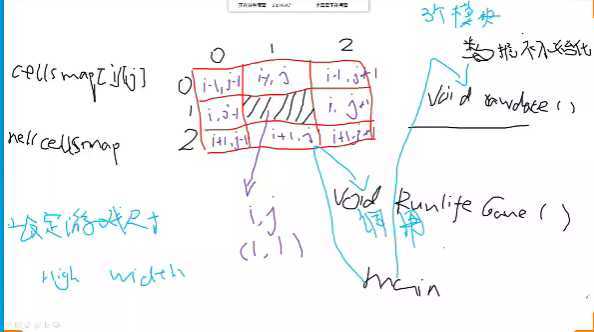 3个模块
0 1 2
cellsmap[i][j]
0 i-1,j-1 i-1,j i-1,j+1
void rawdate()
1 i,j-1 i,j+1
2 i+1,j-1 i+1,j i+1,j+1
newcellsmap
void RunlifeGame()
调用
i,j
(1,1)
设定游戏尺寸
High width
main